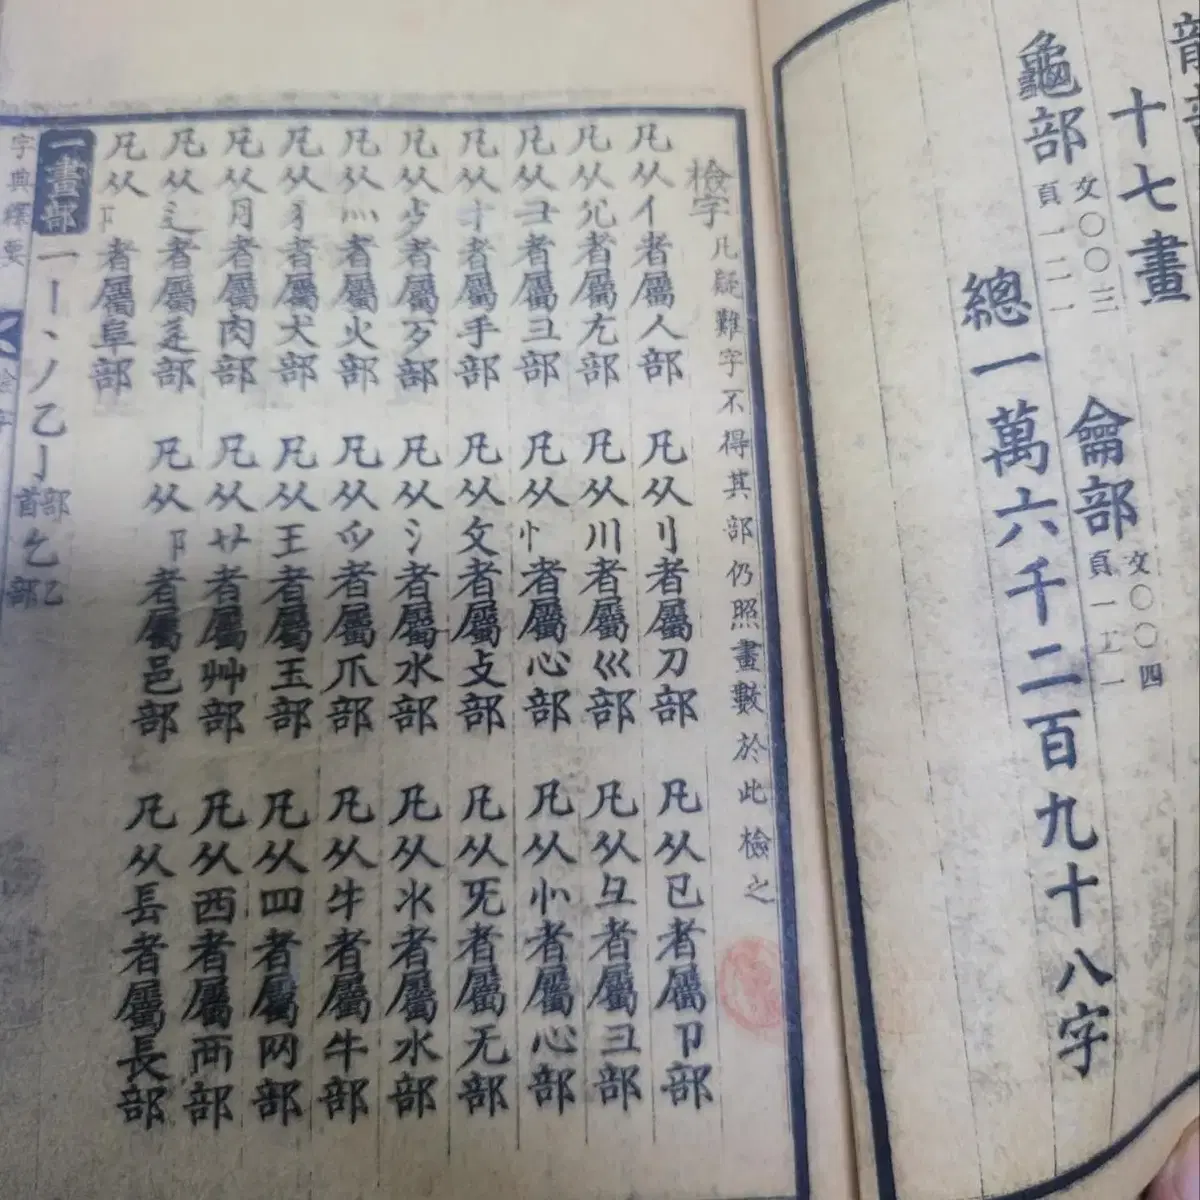 十七畫
龜部 文〇〇三 頁一二一 龠部 文〇〇四
總一萬六千二百九十八字
檢字 凡疑難字不得其部仍照畫數於此檢之
凡从亻者屬人部 凡从刂者屬刀部 凡从㔾者屬卩部
凡从兀者屬尢部 凡从川者屬巛部 凡从彑者屬彐部
凡从彐者屬彐部 凡从忄者屬心部 凡从㣺者屬心部
凡从扌者屬手部 凡从攵者屬攴部 凡从旡者屬无部
凡从歺者屬歹部 凡从氵者屬水部 凡从氺者屬水部
凡从灬者屬火部 凡从爫者屬爪部 凡从牛者屬牛部
凡从犭者屬犬部 凡从王者屬玉部 凡从四者屬网部
凡从月者屬肉部 凡从艹者屬艸部 凡从西者屬襾部
凡从辶者屬辵部 凡从阝者屬邑部 凡从镸者屬長部
凡从阝者屬阜部
一畫部 一丨丶丿乙亅部首 乞乙部
字典擇要 檢字